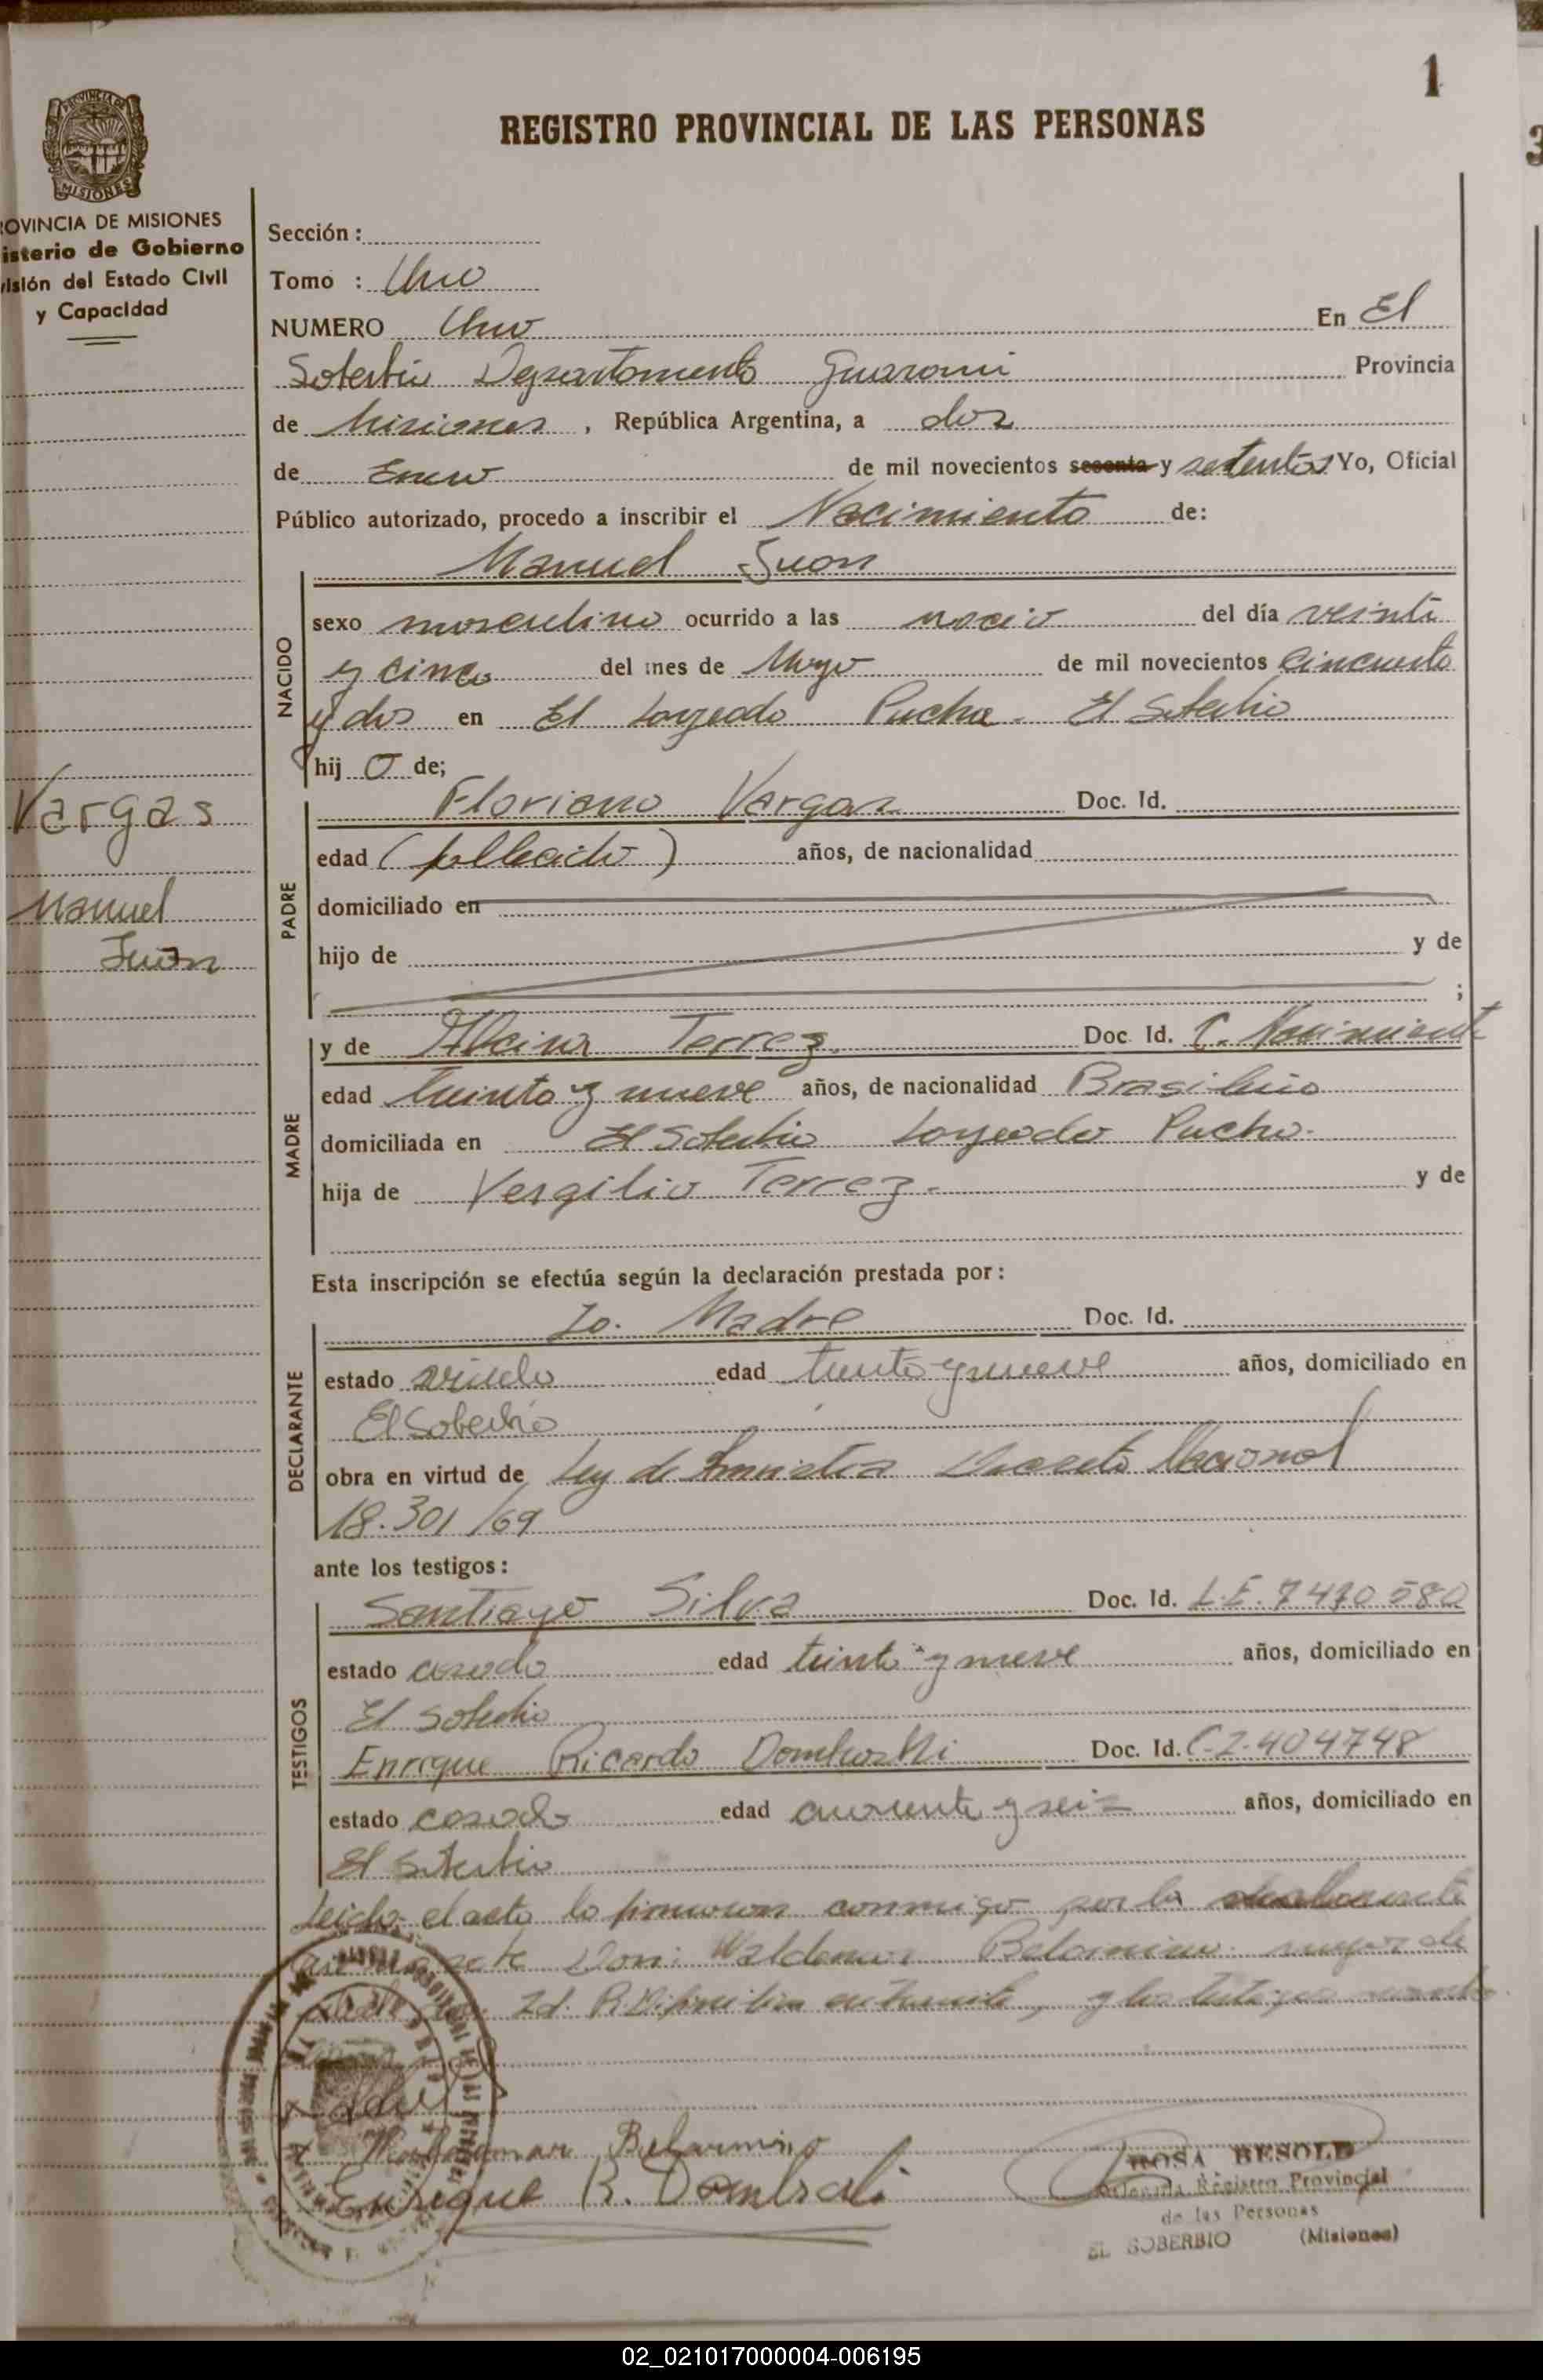 1
REGISTRO PROVINCIAL DE LAS PERSONAS
MISIONES
OVINCIA DE MISIONES
isterio de Gobierno
isión del Estado Civil
y Capacidad
Sección :
Tomo : Uno
NUMERO Uno En El
Soberbio Departamento Guarani Provincia
de Misiones , República Argentina, a dos
de Enero de mil novecientos sesenta y setenta Yo, Oficial
Público autorizado, procedo a inscribir el Nacimiento de:
Manuel Juan
NACIDO
sexo masculino ocurrido a las nacio del día veinti
y cinco del mes de Mayo de mil novecientos Cincuenta
y dos en El Lajeado Pucha. El Soberbio
hij o de;
Vargas
Manuel
Juan
PADRE
Floriano Vargas Doc. Id.
edad (fallecido) años, de nacionalidad
domiciliado en
hijo de y de
;
MADRE
y de Alcina Terrez. Doc. Id. C. Nacimiento
edad treinta y nueve años, de nacionalidad Brasileña
domiciliada en El Soberbio Lajeado Pucho.
hija de Vergilio Terrez. y de
Esta inscripción se efectúa según la declaración prestada por:
DECLARANTE
La Madre Doc. Id.
estado viuda edad treinta y nueve años, domiciliado en
El Soberbio
obra en virtud de Ley de Amnistia Decreto Nacional
18.301/69
ante los testigos:
TESTIGOS
Santiago Silva Doc. Id. L.E. 7470580
estado casado edad treinta y nueve años, domiciliado en
El Soberbio
Enrique Ricardo Dombroski Doc. Id. C.I. 404748
estado casado edad cuarenta y seis años, domiciliado en
El Soberbio
Leida el acta la firmaron conmigo por la declarante
Don: Waldemar Belarmino mayor de
y los testigos
Waldemar Belarmino
Enrique R. Dombroski
ROSA BESOLD
Registro Provincial
de las Personas
EL SOBERBIO (Misiones)
3
02_021017000004-006195